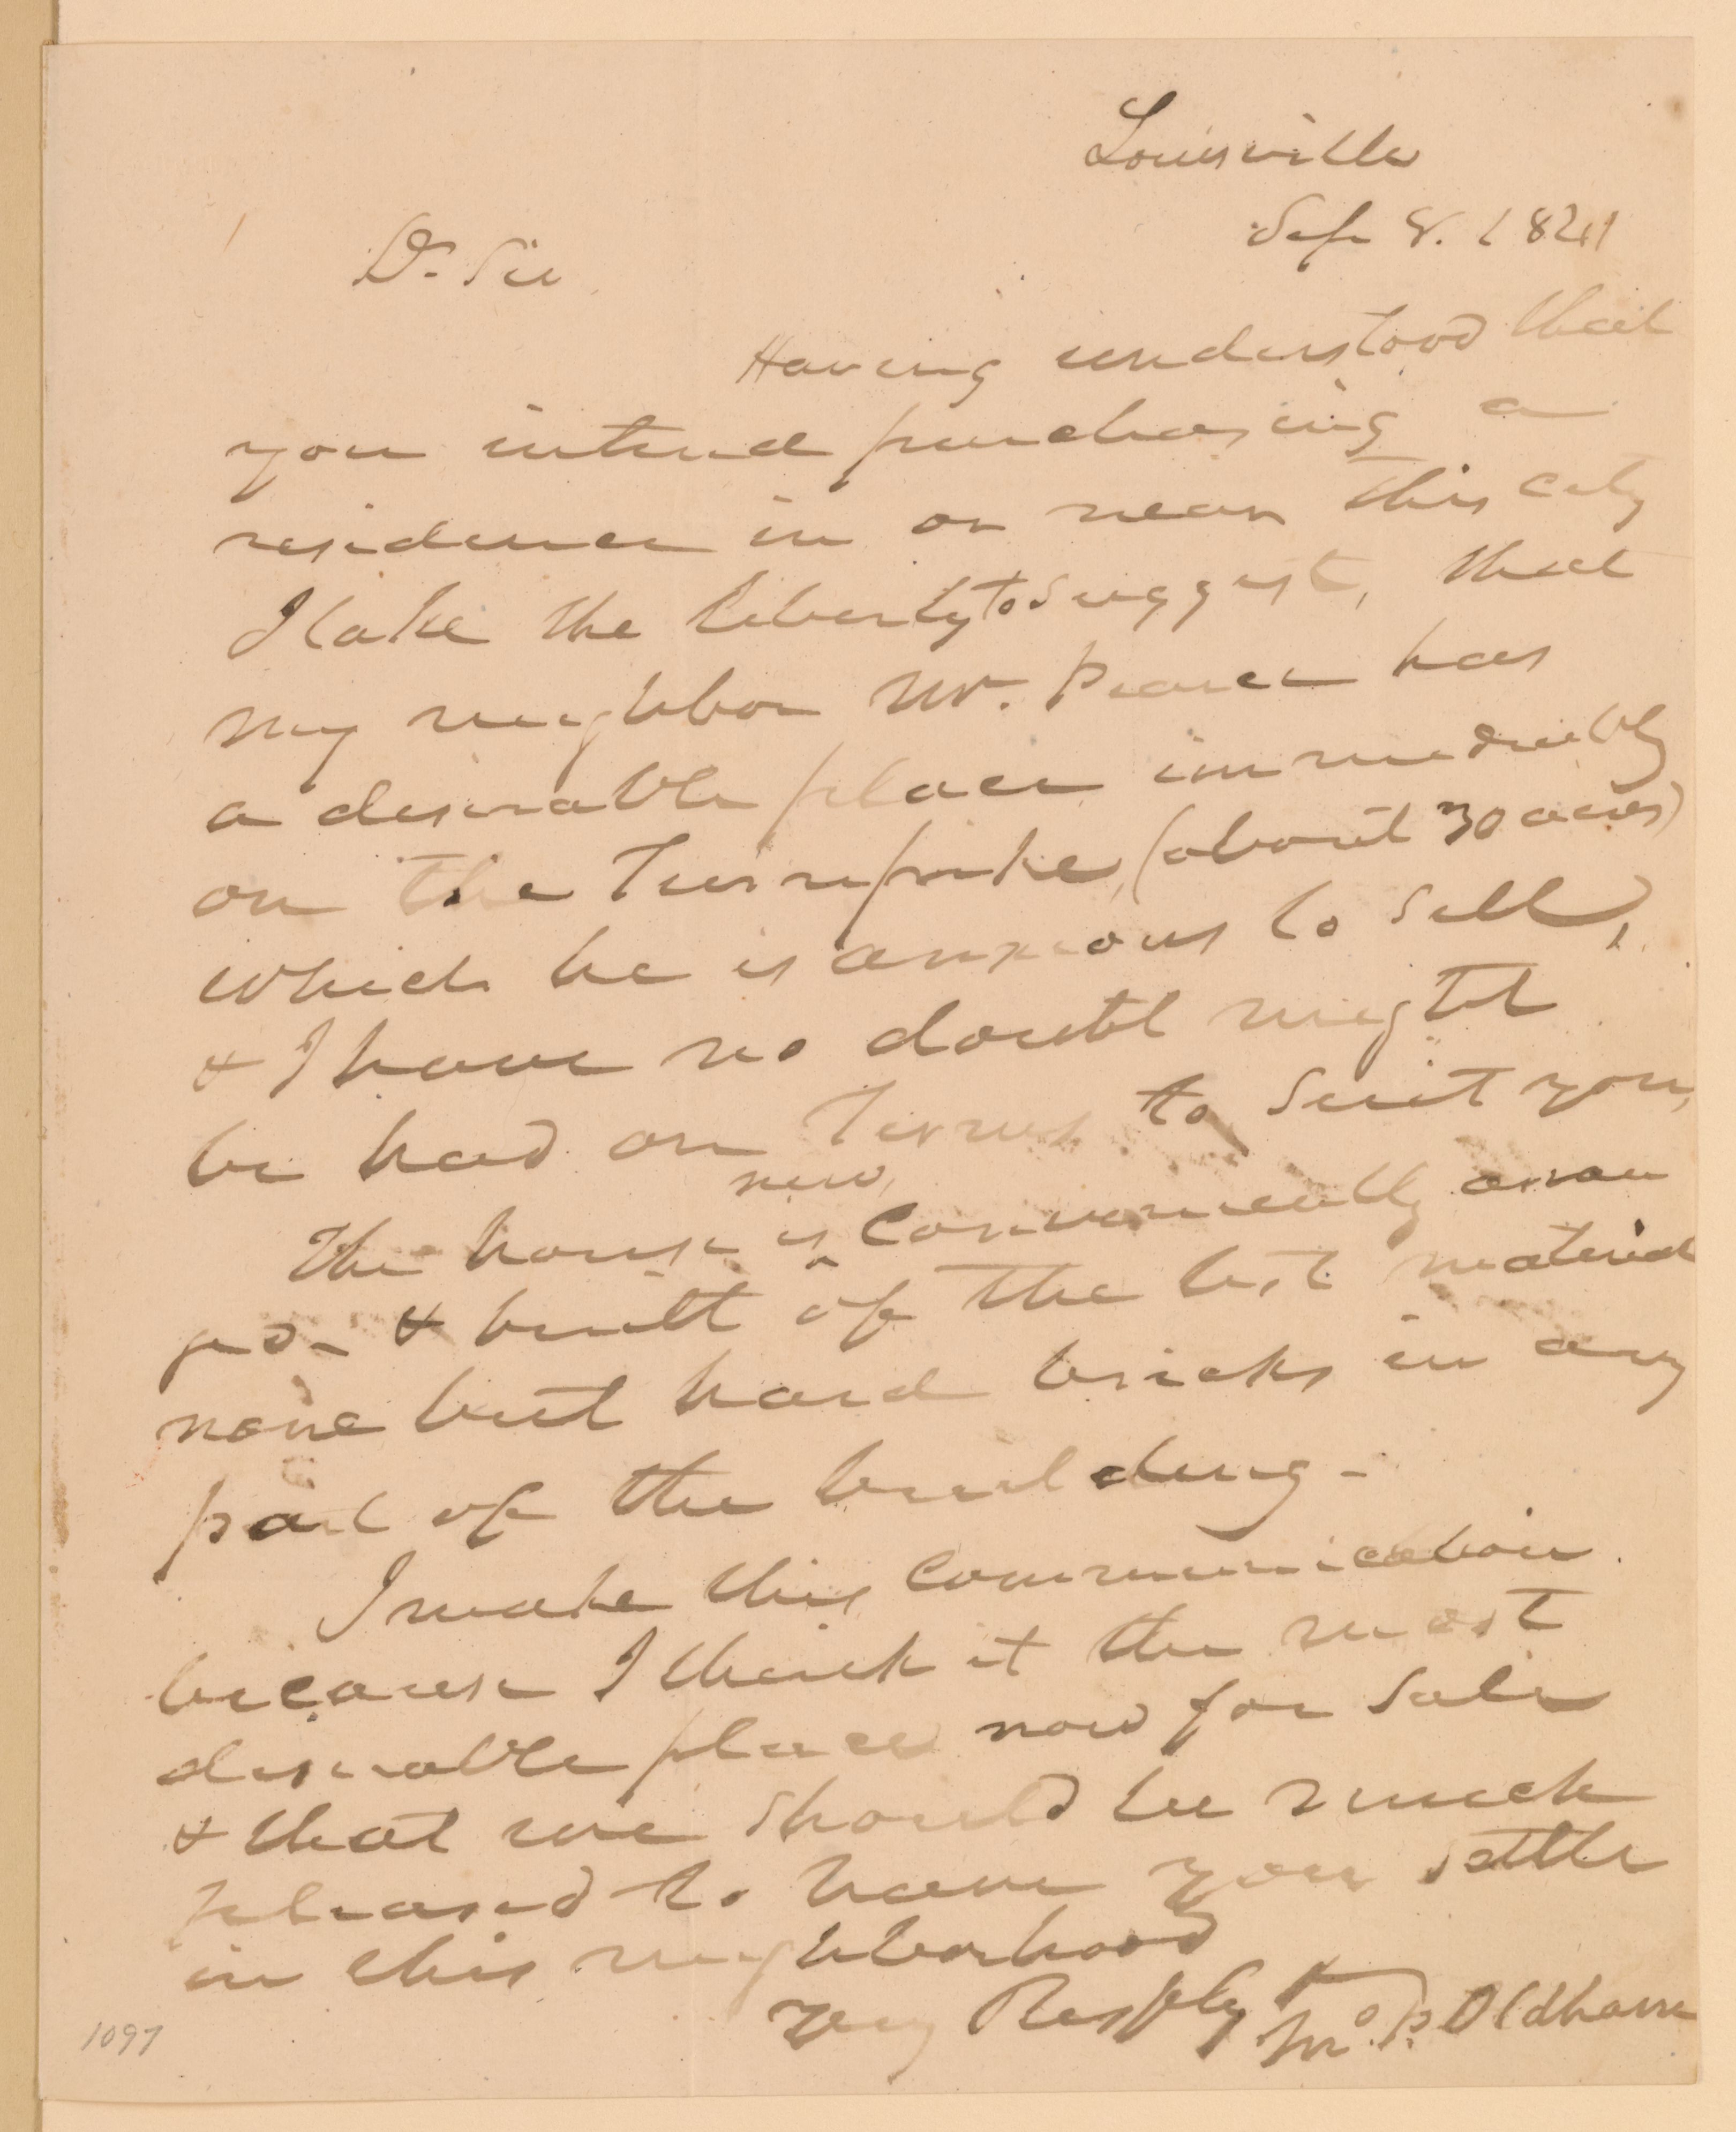 Louisville
Sep 8. 1841
Dr. Sir
Having understood that
you intend purchasing a
residence in or near this city
I take the liberty to suggest, that
my neighbor Mr. has
a desirable place immediatly
on the Turnpike, (about 30 acres)
which he is anxious to sell,
& I have no doubt might
be had on Terms to suit you,
new,
The house is ^ conveniently arran
ged - & built of the best material
none but hard bricks in any
part of the building -
I make this communication
because I think it the most
desirable place now for sale
& that we should be much
pleased to have you settle
in this neighborhood
Very Respfly &c
Jno. P. Oldham
1097